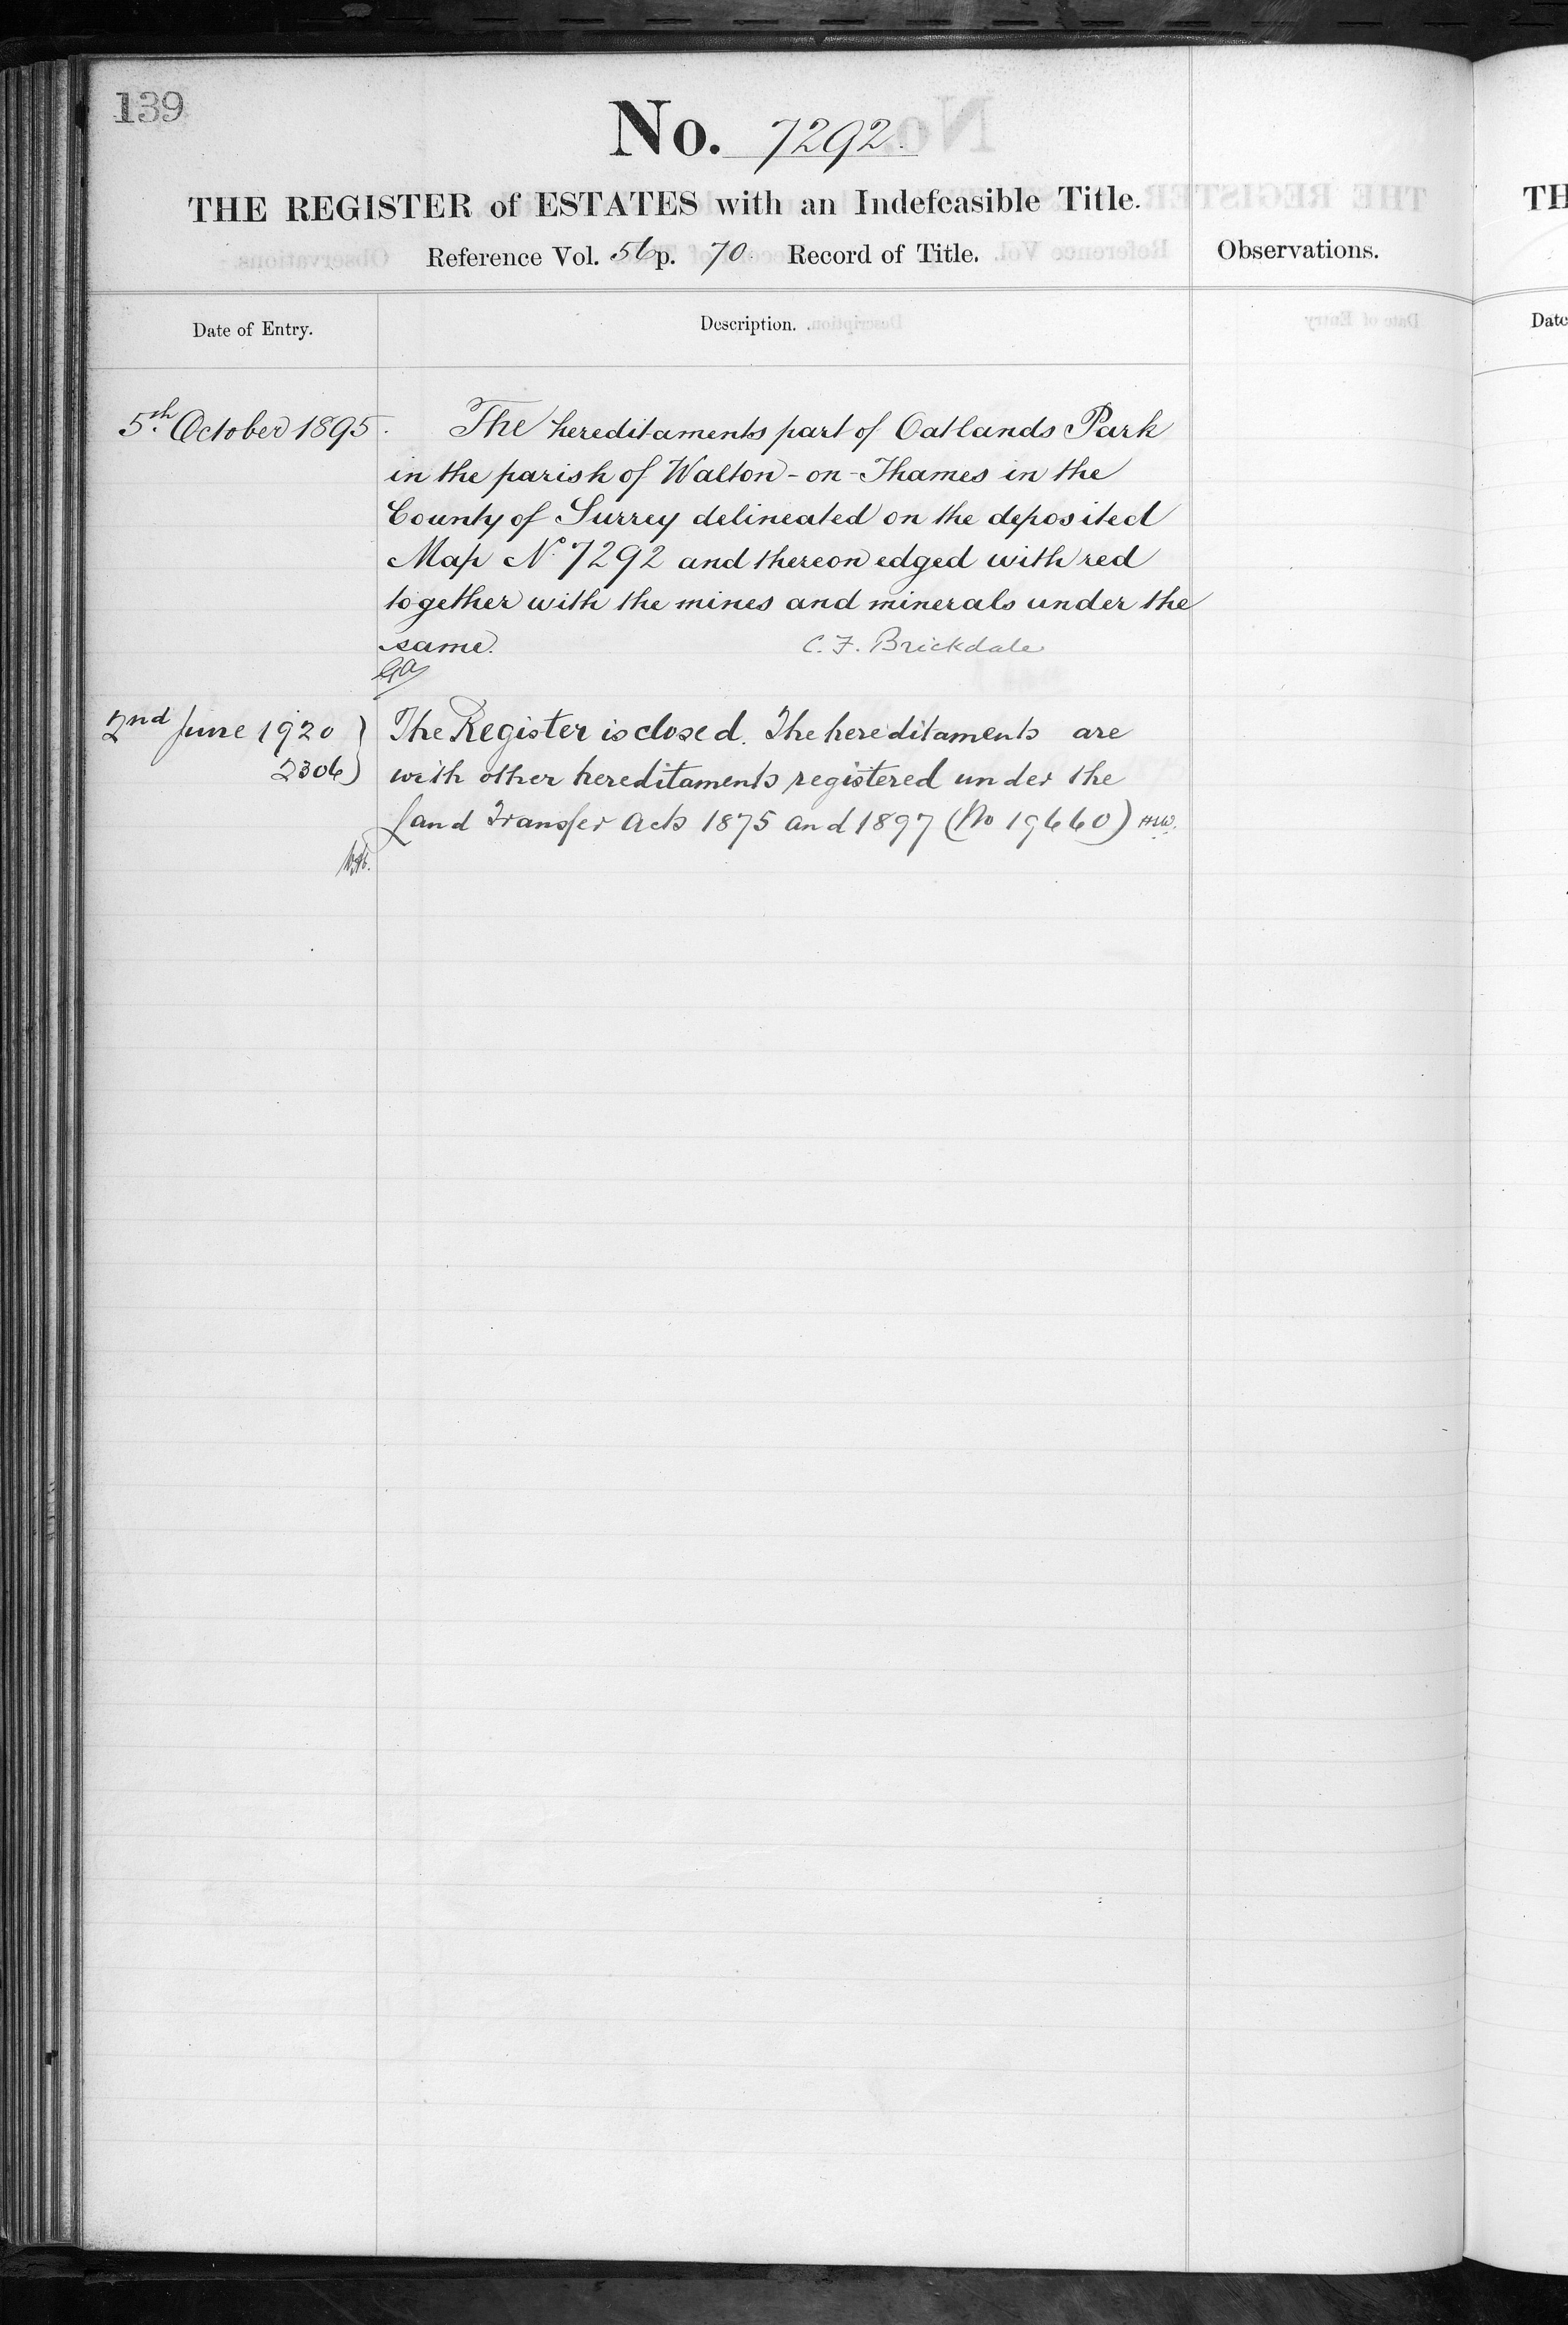 139
No. 7292.
THE REGISTER of ESTATES with an Indefeasible Title.
Reference Vol. 56 p. 70. Record of Title.
Observations.
Date of Entry.
Description.
5th October 1895.
The hereditaments part of Oatlands Park
in the parish of Walton-on-Thames in the
County of Surrey delineated on the deposited
Map No. 7292 and thereon edged with red
together with the mines and minerals under the
same.
C. F. Brickdale
2nd June 1920
2306
The Register is closed. The hereditaments are
with other hereditaments registered under the
Land Transfer Acts 1875 and 1897 (No 19660)
TH
Date